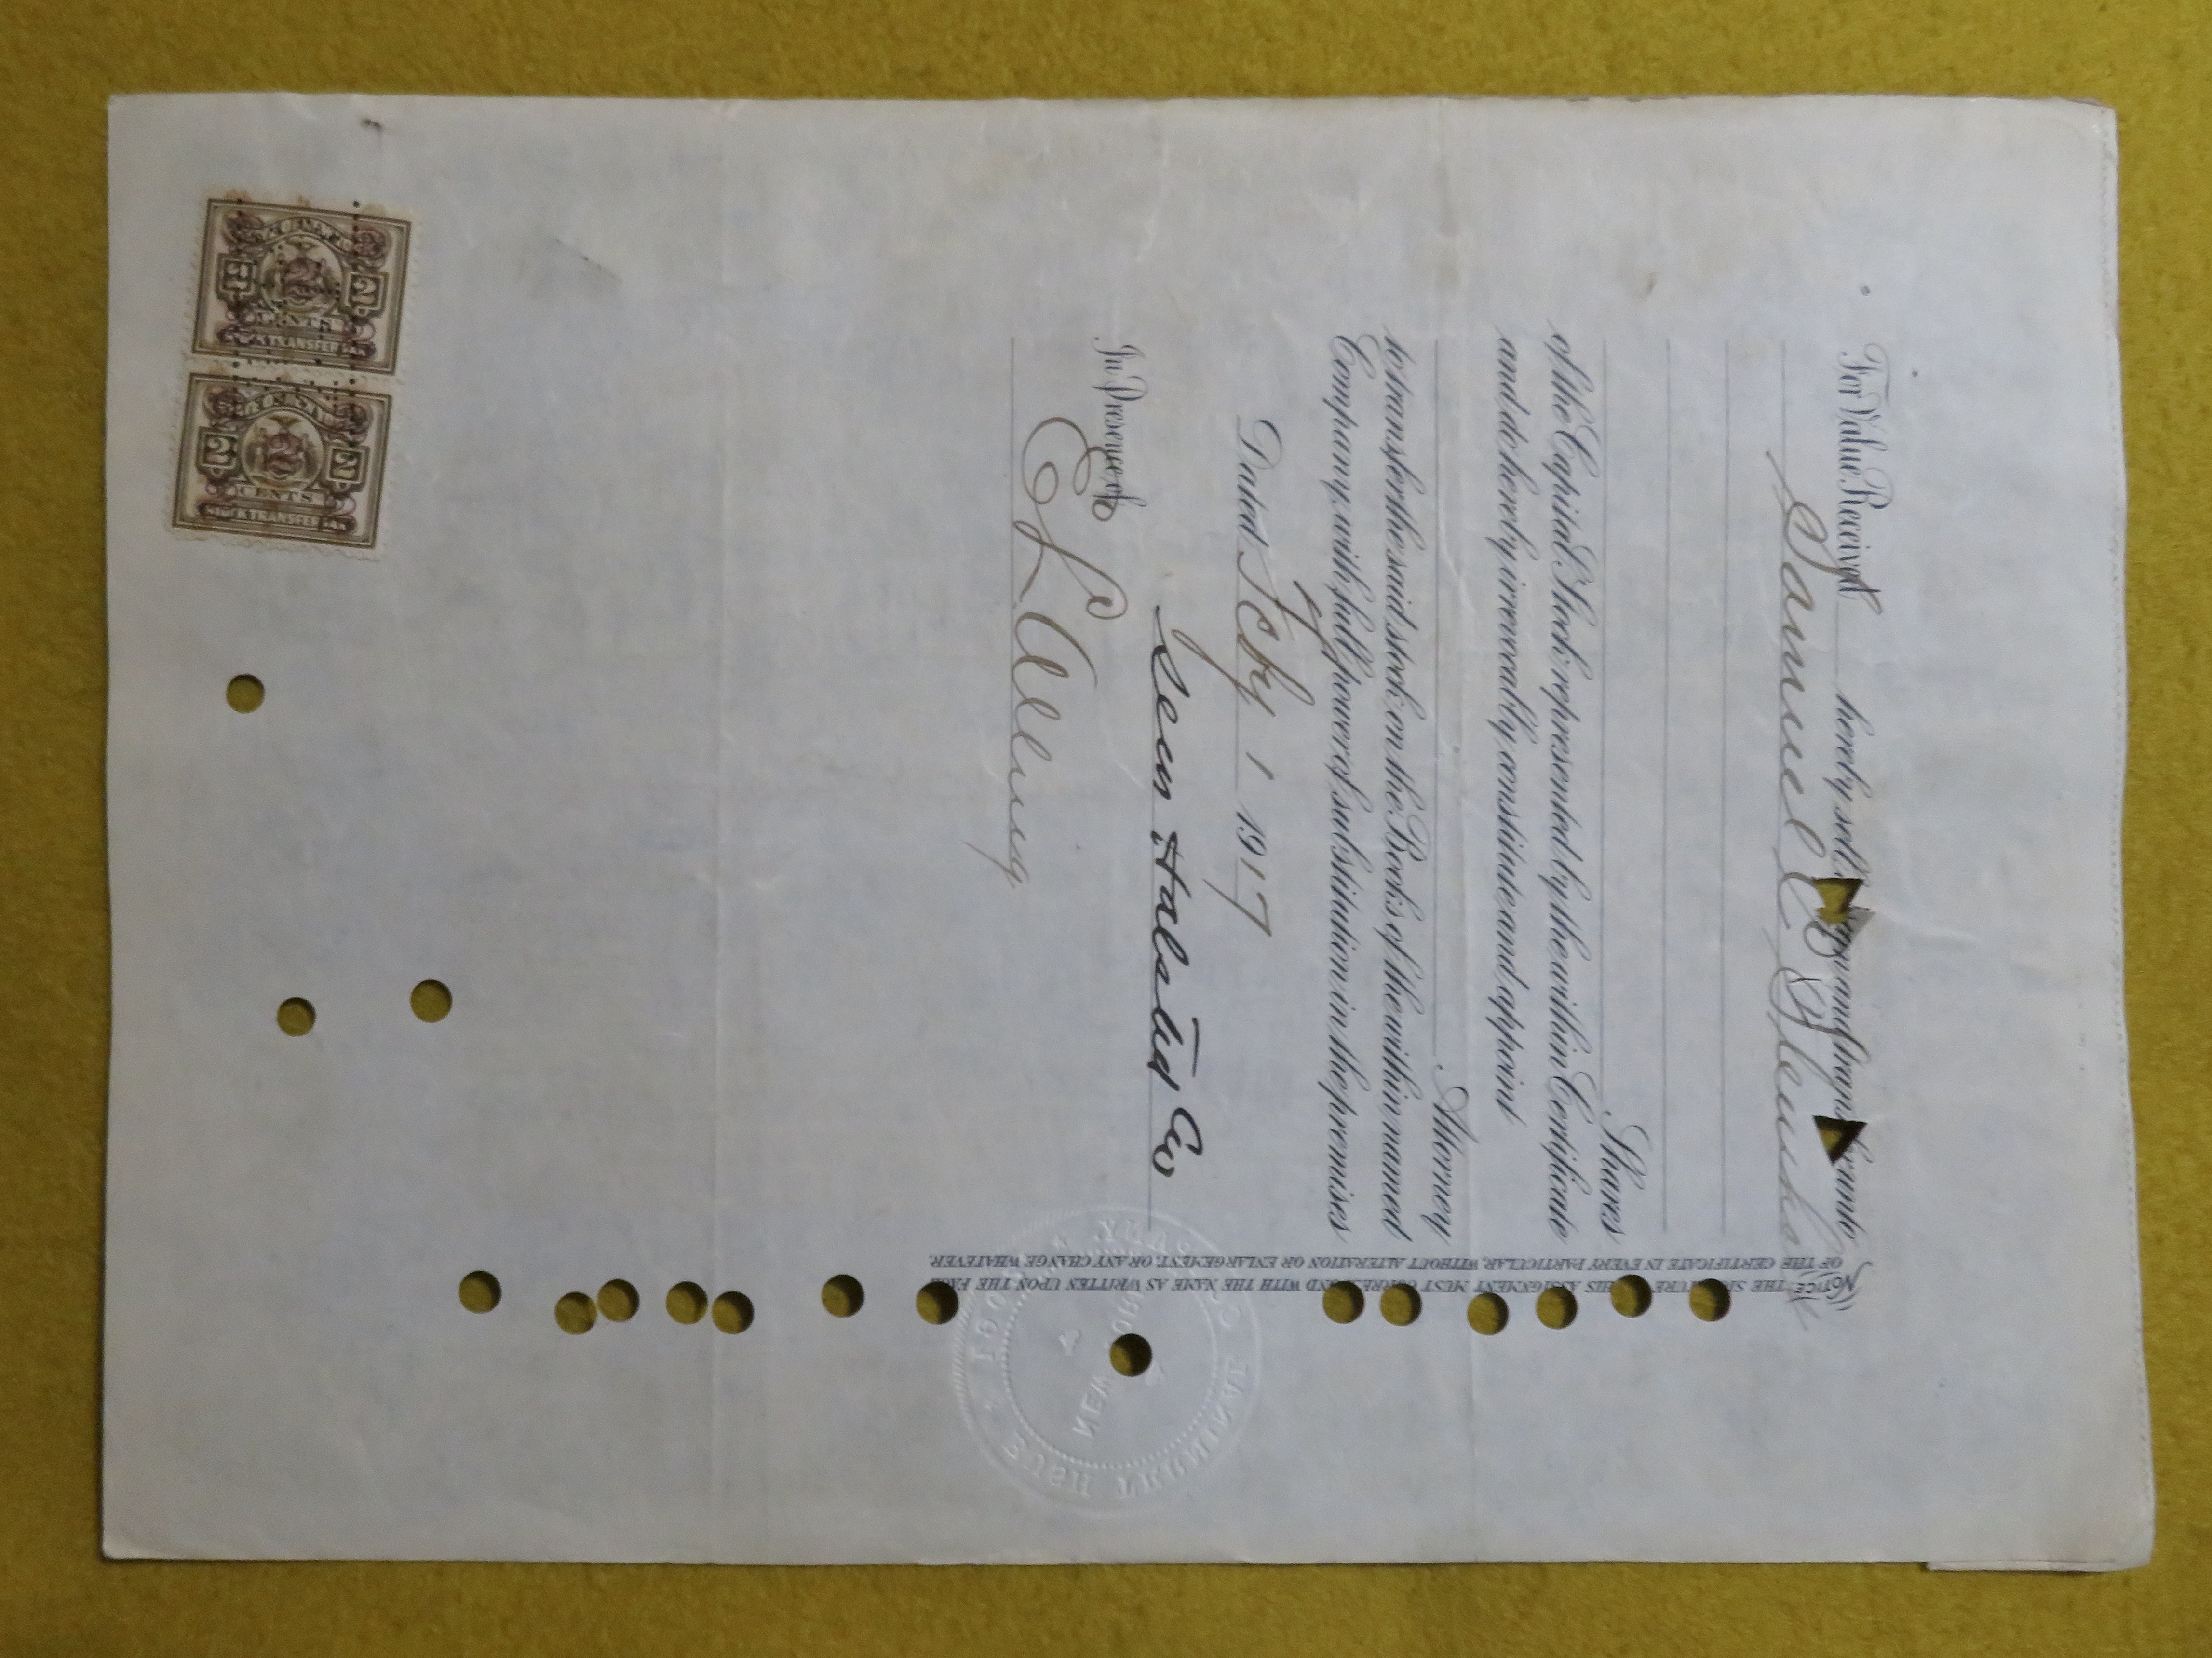 For Value Received hereby sell and transfer unto
Samuel C Steinhardt
Shares
of the Capital Stock represented by the within Certificate
and do hereby irrevocably constitute and appoint
Attorney
to transfer the said stock on the Books of the within named
Company with full power of substitution in the premises
Dated Feby 1 1917
Halsted Co
In Presence of
E L Alling
NOTICE: THE SIGNATURE THIS ASSIGNMENT MUST CORRESPOND WITH THE NAME AS WRITTEN UPON THE FACE
OF THE CERTIFICATE IN EVERY PARTICULAR, WITHOUT ALTERATION OR ENLARGEMENT, OR ANY CHANGE WHATEVER.
BUSH TERMINAL COMPANY
NEW
2 2
CENTS
STOCK TRANSFER TAX
2 2
CENTS
STOCK TRANSFER TAX